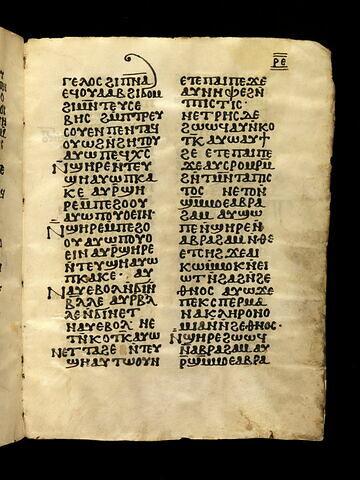 ⲣⲉ
ⲅⲉⲗⲟⲥ ϩⲓⲡⲛⲁ
ⲉϥⲟⲩⲁⲁⲃ ϩⲓϭⲟⲙ
ϩⲓⲙⲛⲧⲉⲩⲥⲉ
ⲃⲏⲥ ϩⲙⲡⲧⲣⲉⲩ
ⲥⲟⲩⲉⲛⲡⲉⲛⲧⲁϥ
ⲟⲩⲱⲛϩ ⲛϩⲏⲧⲟⲩ
ⲁⲩⲱ ⲡⲉⲭⲥ
ⲛϣⲏⲣⲉ ⲛⲧⲉⲩ
ϣⲏ ⲁⲩⲱ ⲡⲕⲁ
ⲕⲉ ⲁⲩⲣϣⲏ
ⲣⲉ ⲙⲡⲉϩⲟⲟⲩ
ⲁⲩⲱ ⲡⲟⲩⲟⲉⲓⲛ·
ⲛϣⲏⲣⲉ ⲙⲡⲉϩⲟ
ⲟⲩ ⲁⲩⲱ ⲡⲟⲩⲟ
ⲉⲓⲛ ⲁⲩⲣϣⲏⲣⲉ
ⲛⲧⲉⲩϣⲏ ⲁⲩⲱ
ⲡⲕⲁⲕⲉ · ⲁⲩ
ⲛⲁⲩ ⲉⲃⲟⲗ ⲛϭⲓⲛ
ⲃⲗⲗⲉ ⲁⲩⲣⲃⲗ
ⲗⲉ ⲛϭⲓⲛⲉⲧ
ⲛⲁⲩ ⲉⲃⲟⲗ ⲛⲉ
ⲧⲛⲕⲟⲧⲕ ⲁⲩⲱ
ⲛⲉⲧⲧⲁϩⲉ ⲛⲧⲉⲩ
ϣⲏ ⲁⲩⲧⲱⲟⲩⲛ
ⲉⲧⲉⲡⲁⲓⲡⲉ ϫⲉ
ⲁⲩⲛⲏⲫⲉ ϩⲛ
ⲧⲡⲓⲥⲧⲓⲥ ·
ⲛⲉⲧⲣⲏⲥ ⲇⲉ
ϩⲱⲱϥ ⲁⲩⲛⲕⲟ
ⲧⲕ ⲁⲩⲱ ⲁⲩϯ
ϩⲉ ⲉⲧⲉⲡⲁⲓⲡⲉ
ϫⲉ ⲁⲩⲥⲣⲟⲙⲣⲙ
ϩⲛⲧⲙⲛⲧⲁⲡⲓⲥ
ⲧⲟⲥ ⲛⲉⲧⲟⲛ
ϣⲙⲙⲟ ⲉⲁⲃⲣⲁ
ϩⲁⲙ ⲁⲩϣⲱ
ⲡⲉ ⲛϣⲏⲣⲉ ⲛ
ⲁⲃⲣⲁϩⲁⲙ ⲛⲑⲉ
ⲉⲧⲥⲏϩ ϫⲉ ⲁⲓ
ⲕⲱ ⲙⲙⲟⲕ ⲛⲉⲓ
ⲱⲧ ⲛϩⲁϩ ⲛϩⲉ
ⲑⲛⲟⲥ ⲁⲩⲱ ϫⲉ
ⲡⲉⲕⲥⲡⲉⲣⲙⲁ
ⲛⲁⲕⲗⲏⲣⲟⲛⲟ
ⲙⲓ ⲁⲛⲛϩⲉⲑⲛⲟⲥ·
ⲛϣⲏⲣⲉ ϩⲱⲱϥ
ⲛⲁⲃⲣⲁϩⲁⲙ ⲁⲩ
ⲣϣⲙⲙⲟ ⲉⲁⲃⲣⲁ